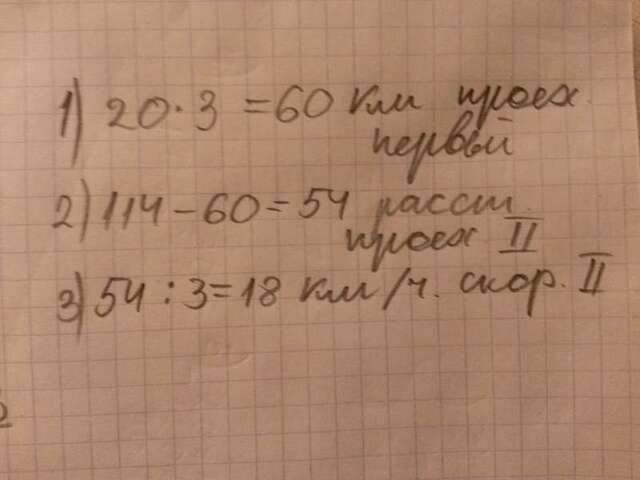 1) 20·3 = 60 км проех.
первый
2) 114 - 60 = 54 расст.
проех II
3) 54 : 3 = 18 км/ч. скор. II